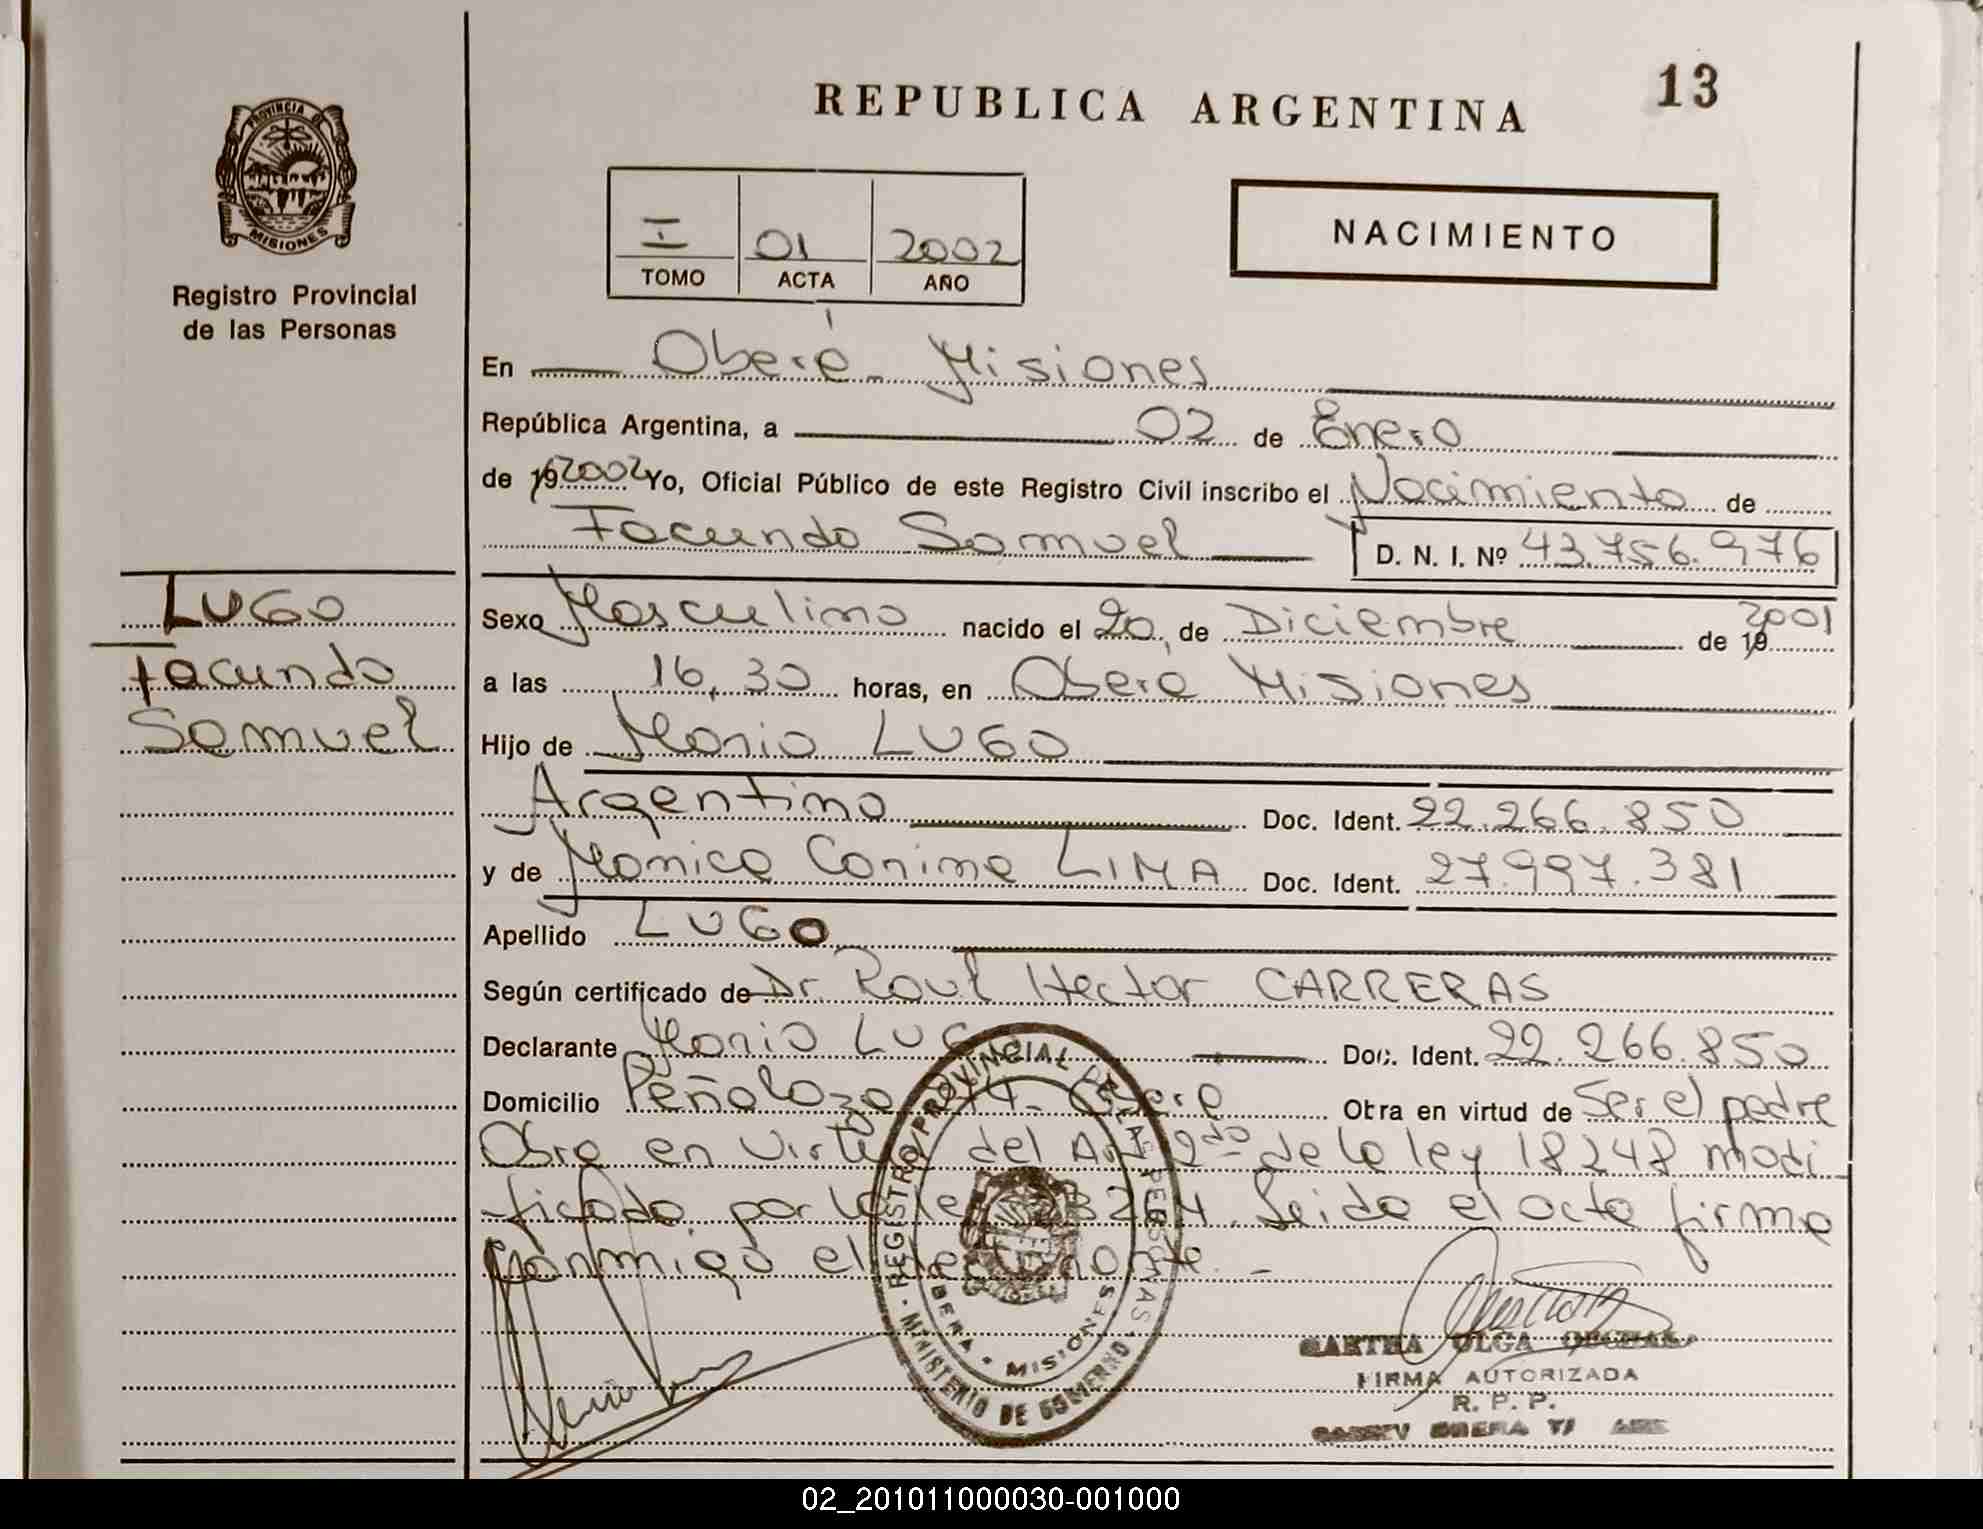 REPUBLICA ARGENTINA
13
PROVINCIA DE
MISIONES
Registro Provincial
de las Personas
I 01 2002
TOMO ACTA AÑO
NACIMIENTO
En Oberá - Misiones
República Argentina, a 02 de Enero
de 19 2002 Yo, Oficial Público de este Registro Civil inscribo el Nacimiento de
Facundo Samuel D. N. I. Nº 43.756.976
LUGO
Facundo
Samuel
Sexo Masculino nacido el 20 de Diciembre de 19 2001
a las 16,30 horas, en Oberá Misiones
Hijo de Mario LUGO
Argentino Doc. Ident. 22.266.850
y de Monica Corina LIMA Doc. Ident. 27.997.381
Apellido LUGO
Según certificado de Dr. Raul Hector CARRERAS
Declarante Mario LUGO Doc. Ident. 22.266.850
Domicilio Peñaloza Oberá Obra en virtud de Ser el padre
Obra en Virtud del Art 2do de la ley 18248 modi
ficada por la ley 23264. Leida el acta firma
conmigo el declarante. -
REGISTRO PROVINCIAL DE LAS PERSONAS
MINISTERIO DE GOBIERNO
OBERA - MISIONES
OLGA
FIRMA AUTORIZADA
R. P. P.
02_201011000030-001000